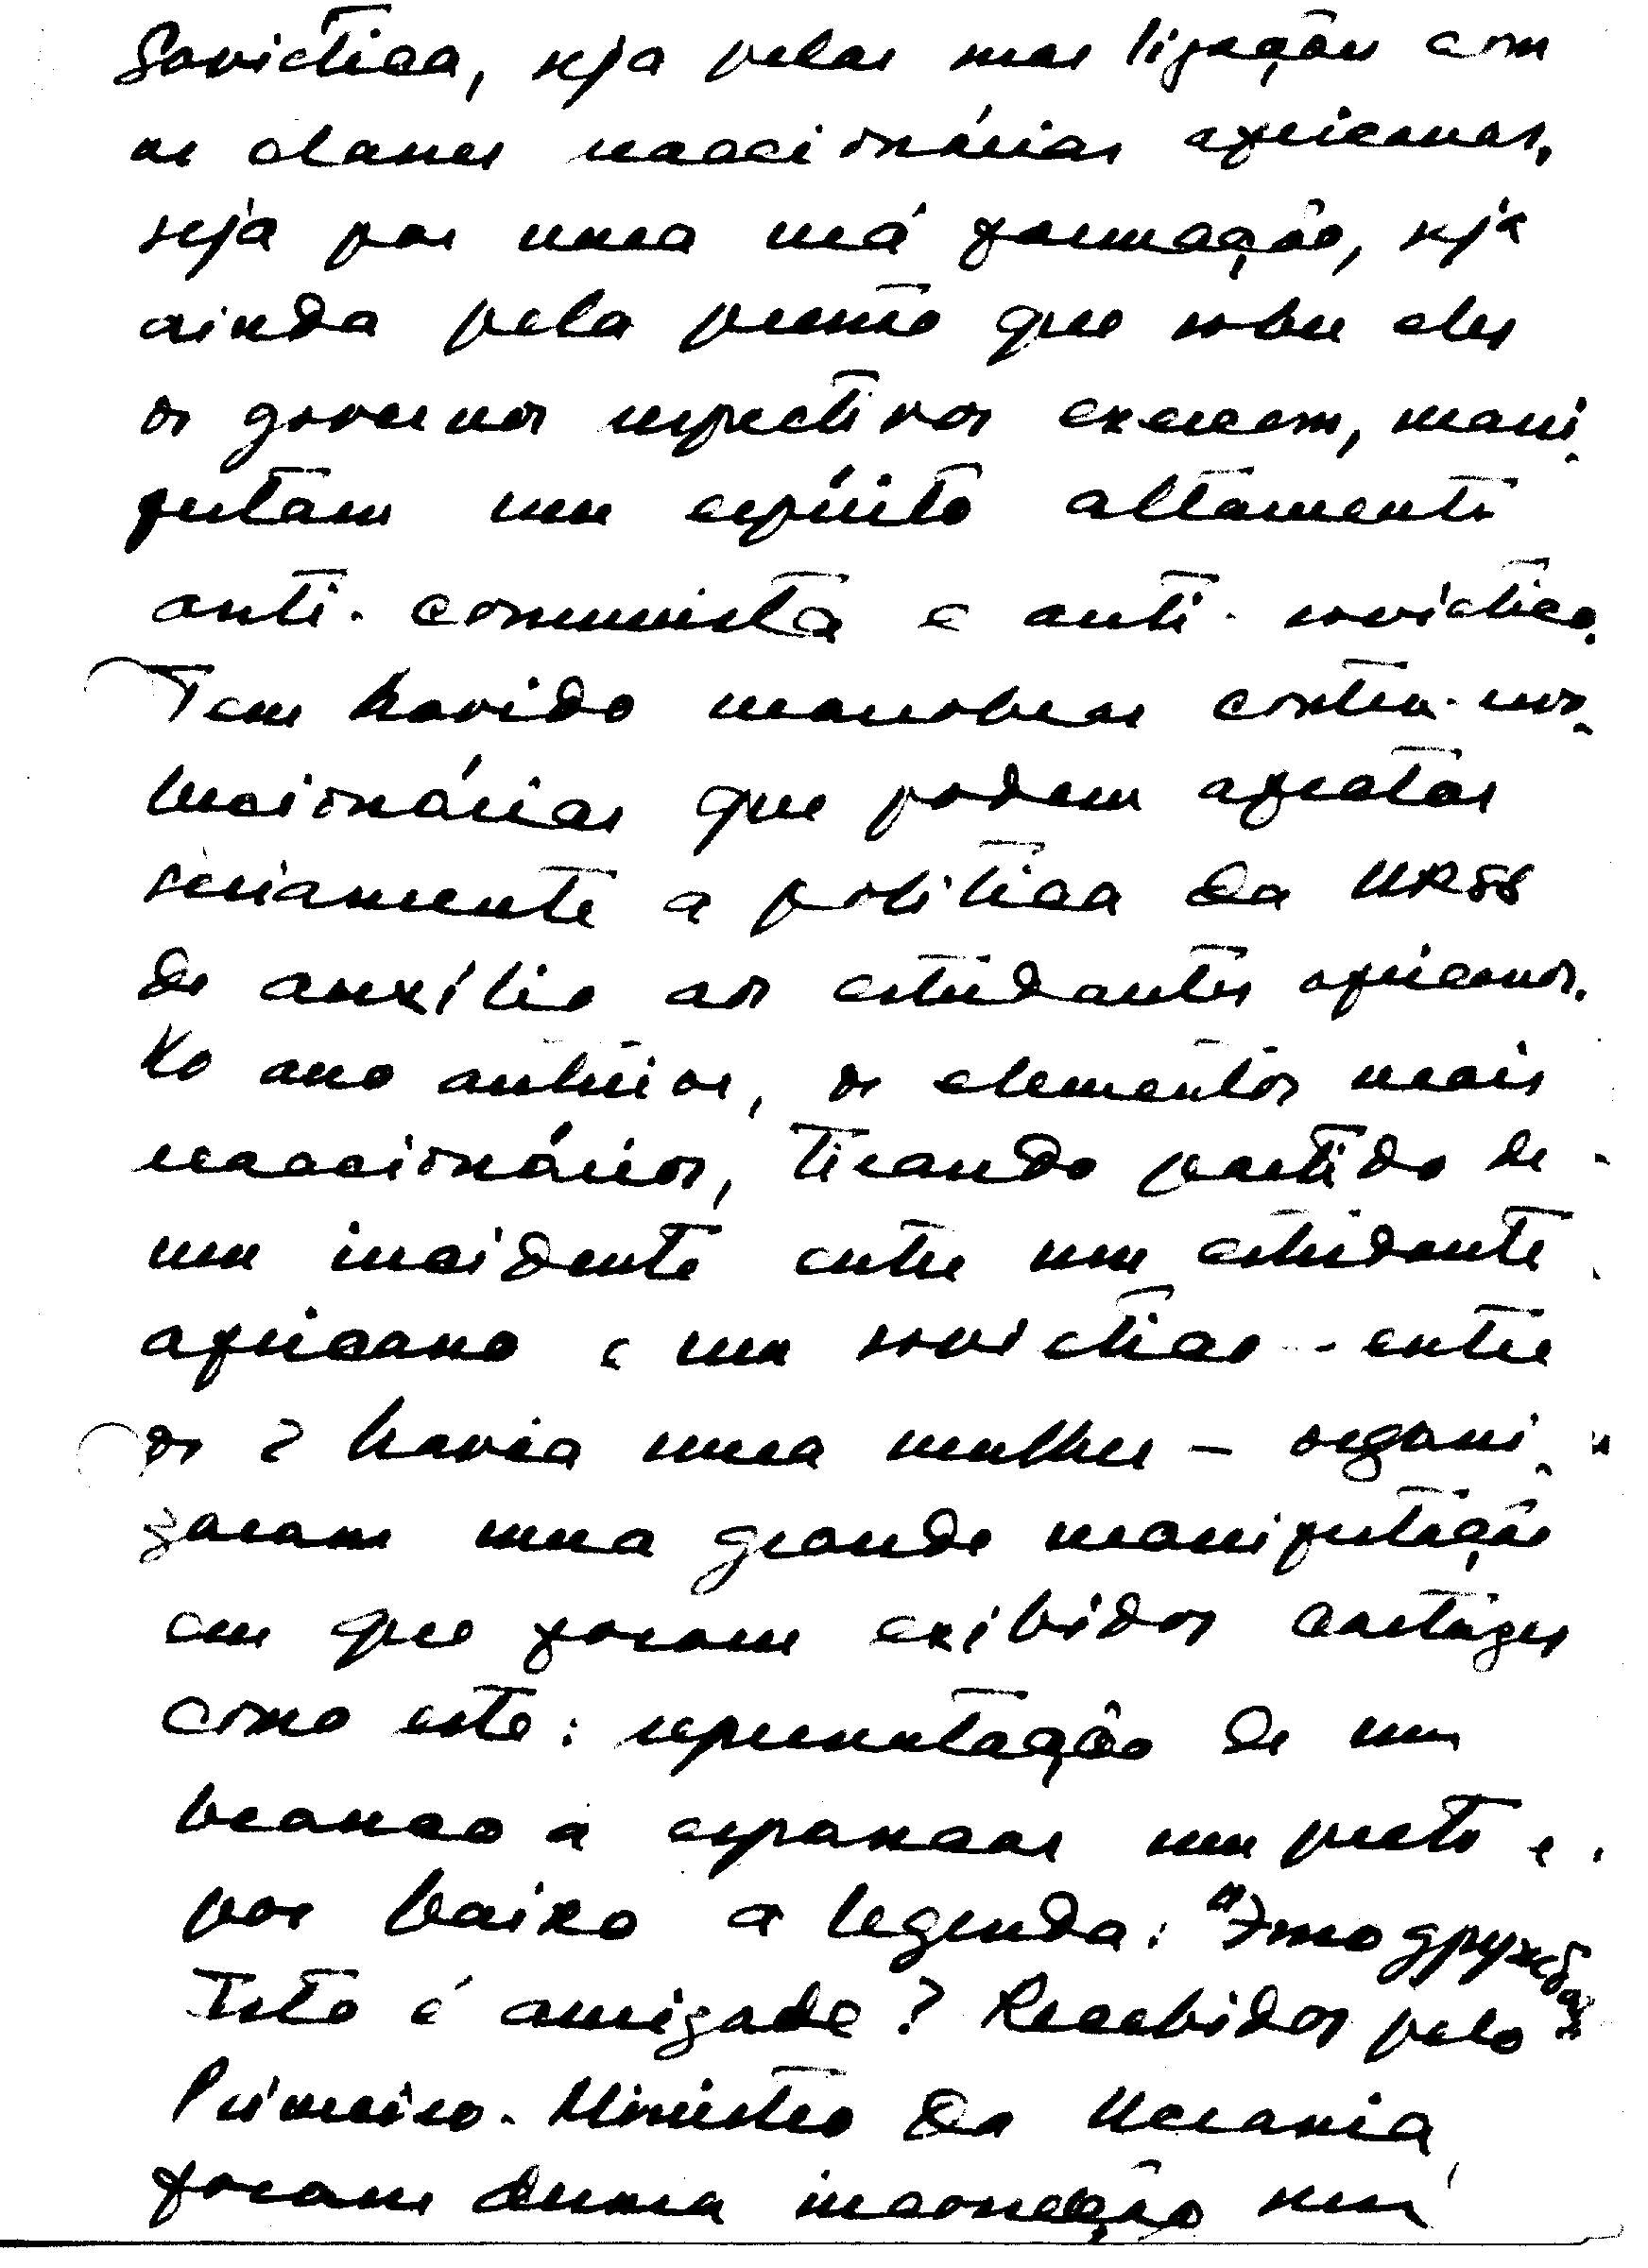 Soviética, seja pelas suas ligações com
as classes reaccionárias africanas,
seja por uma má formação, seja
ainda pela pressão que sobre eles
os governos respectivos exercem, mani-
festam um espírito altamente
anti-comunista e anti-soviético.
Tem havido manobras contra-revo-
lucionárias que podem afectar
seriamente a política da URSS
de auxílio aos estudantes africanos.
No ano anterior, os elementos mais
reaccionários, tirando partido de
um incidente entre um estudante
africano e um soviético - entre
os 2 havia uma mulher - organi-
zaram uma grande manifestação
em que foram exibidos cartazes
como este: representação de um
branco a espancar um preto e
por baixo a legenda: "Это дружба?"
Isto é amizade? Recebidos pelo
Primeiro-Ministro da Ucrania,
foram duma incorrecção sem